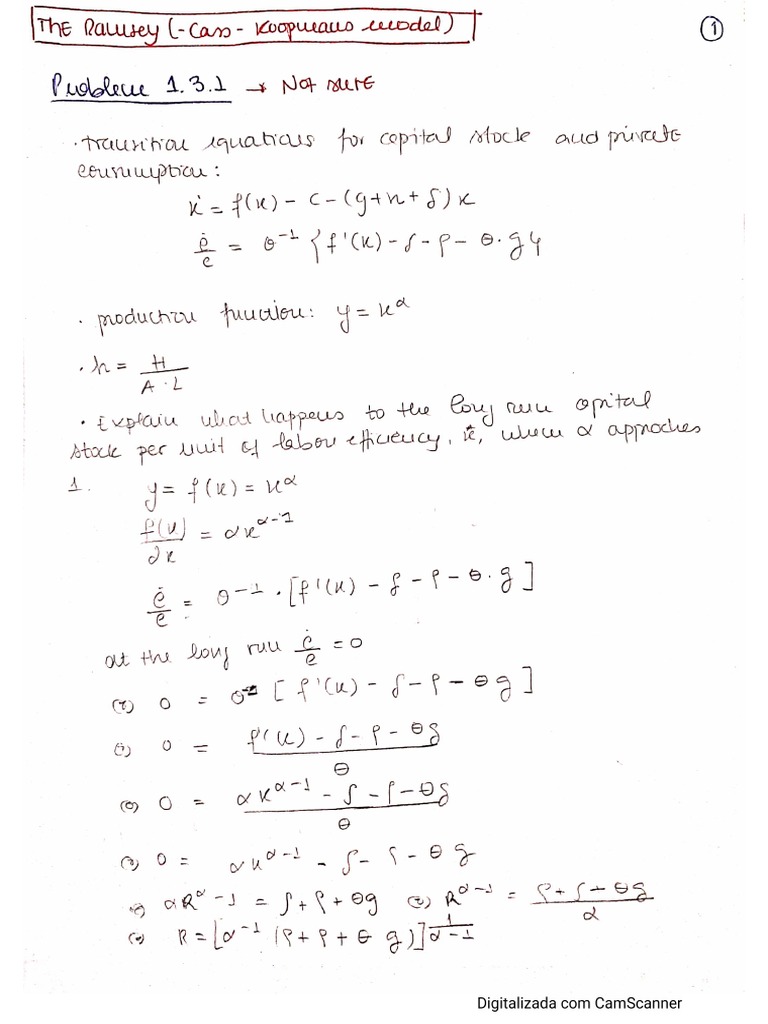 The Ramsey (-Cass-Koopmans model)
1
Problem 1.3.1 → Not sure
· transition equations for capital stock and private
consumption:
k̇ = f(k) - c - (g+n+δ)k
ċ/c = θ^-1 {f'(k) - δ - ρ - θ·g}
· production function: y = k^α
· k = K/(A·L)
· Explain what happens to the long run capital
stock per unit of labor efficiency, k, when α approches
1.
y = f(k) = k^α
f(k)/∂k = αk^(α-1)
ċ/c = θ^-1 · [f'(k) - δ - ρ - θ·g]
at the long run ċ/c = 0
(=) 0 = θ^-1 [f'(k) - δ - ρ - θg]
(=) 0 = (f'(k) - δ - ρ - θg)/θ
(=) 0 = (αk^(α-1) - δ - ρ - θg)/θ
(=) 0 = αk^(α-1) - δ - ρ - θg
(=) αk^α-1 = δ + ρ + θg (=) k^(α-1) = (ρ + δ + θg)/α
(=) k = [α^-1 (ρ + ρ + θ g)]^(1/(α-1))
Digitalizada com CamScanner